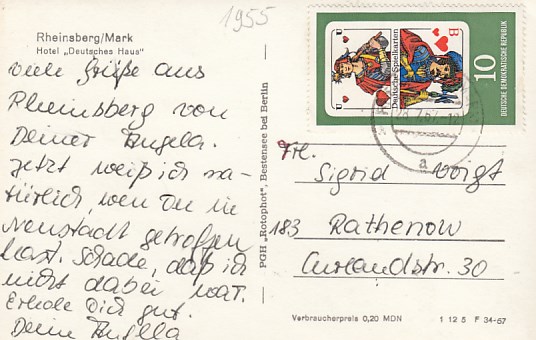 1955
Rheinsberg/Mark
Hotel „Deutsches Haus"
viele Grüße aus
Rheinsberg von
Deiner Angela.
Jetzt weiß ich na-
türlich, wen Du in
Neustadt getroffen
hast. Schade, daß ich
nicht dabei war.
Erhole Dich gut.
Deine Angela
PGH „Rotophot", Bestensee bei Berlin
U
U
B
Deutsche Spielkarten
10
DEUTSCHE DEMOKRATISCHE REPUBLIK
a
Frl.
Sigrid Voigt
183 Rathenow
Curlandstr. 30
Verbraucherpreis 0,20 MDN
1 12 5 F 34-67